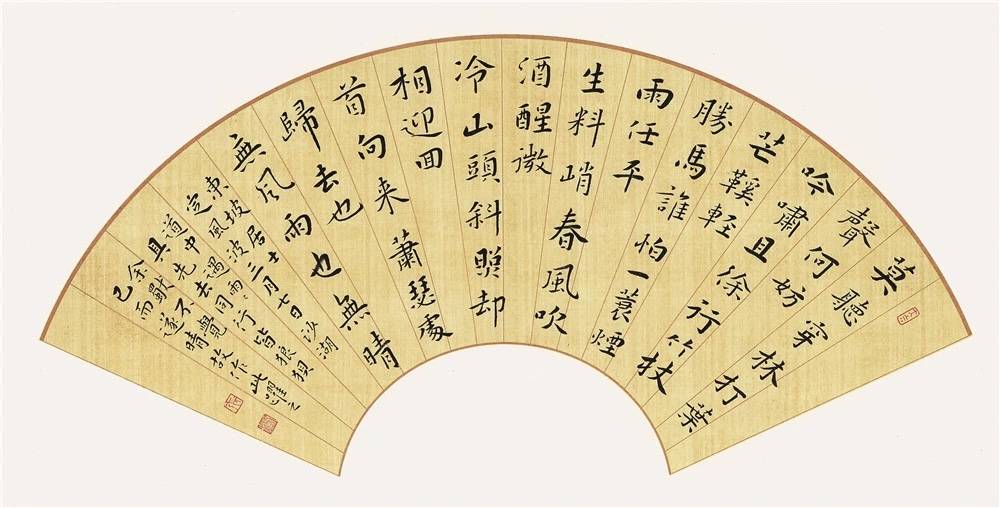 莫聽穿林打葉
聲何妨
吟嘯且徐行竹杖
芒鞵輕
勝馬誰怕一蓑煙
雨任平
生料峭春風吹
酒醒微
冷山頭斜照却
相迎回
首向来蕭瑟處
歸去也
無風雨也無晴
東坡居士
定風波三月七日沙湖
道中遇雨〻
具先去同行皆狼狽
余獨不覺
已而遂晴故作此耀之